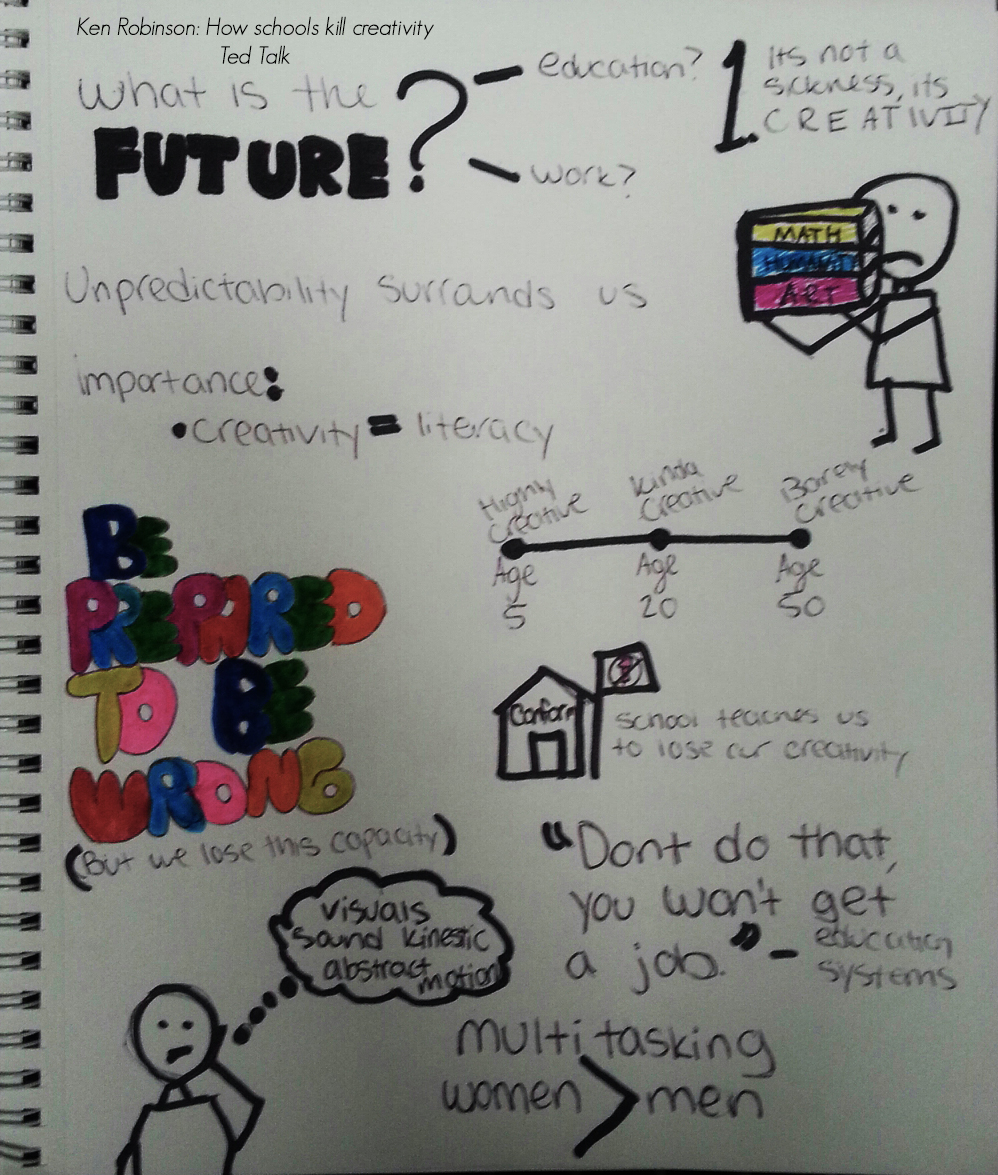 Ken Robinson: How schools kill creativity
Ted Talk
What is the
FUTURE?
- education?
- work?
1. Its not a
sickness, its
CREATIVITY
MATH
HUMANITY
ART
Unpredictability surrands us
importance:
•creativity = literacy
Highly
creative
Kinda
Creative
Barely
Creative
Age
5
Age
20
Age
50
BE
PREPARED
TO BE
WRONG
(But we lose this capacity)
Conform
School teaches us
to lose our creativity
"Dont do that,
you won't get
a job." - education
systems
visuals
sound kinestic
abstract motion
multitasking
women > men